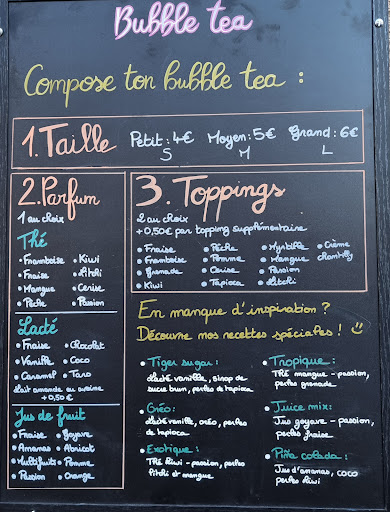 Bubble tea
Compose ton bubble tea :
1. Taille
Petit : 4€ Moyen : 5€ Grand : 6€
S M L
2. Parfum
1 au choix
Thé
• Framboise • Kiwi
• Fraise • Litchi
• Mangue • Cerise
• Pêche • Passion
Lacté
• Fraise • Chocolat
• Vanille • Coco
• Caramel • Taro
Lait amande ou avoine
+0,50€
Jus de fruit
• Fraise • Goyave
• Ananas • Abricot
• Multifruits • Pomme
• Passion • Orange
3. Toppings
2 au choix
+0,50€ par topping supplémentaire
• Fraise • Pêche • Myrtille • Crème
• Framboise • Pomme • Mangue chantilly
• Grenade • Cerise • Passion
• Kiwi • Tapioca • Litchi
En manque d'inspiration ?
Découvre nos recettes spéciales !
• Tiger sugar :
Lacté vanille, sirop de
sucre brun, perles de tapioca
• Oréo :
Lacté vanille, oréo, perles
de tapioca
• Exotique :
Thé kiwi - passion, perles
litchi et mangue
• Tropique :
Thé mangue - passion,
perles grenade
• Juice mix :
Jus goyave - passion,
perles fraise
• Piña colada :
Jus d'ananas, coco
perles kiwi